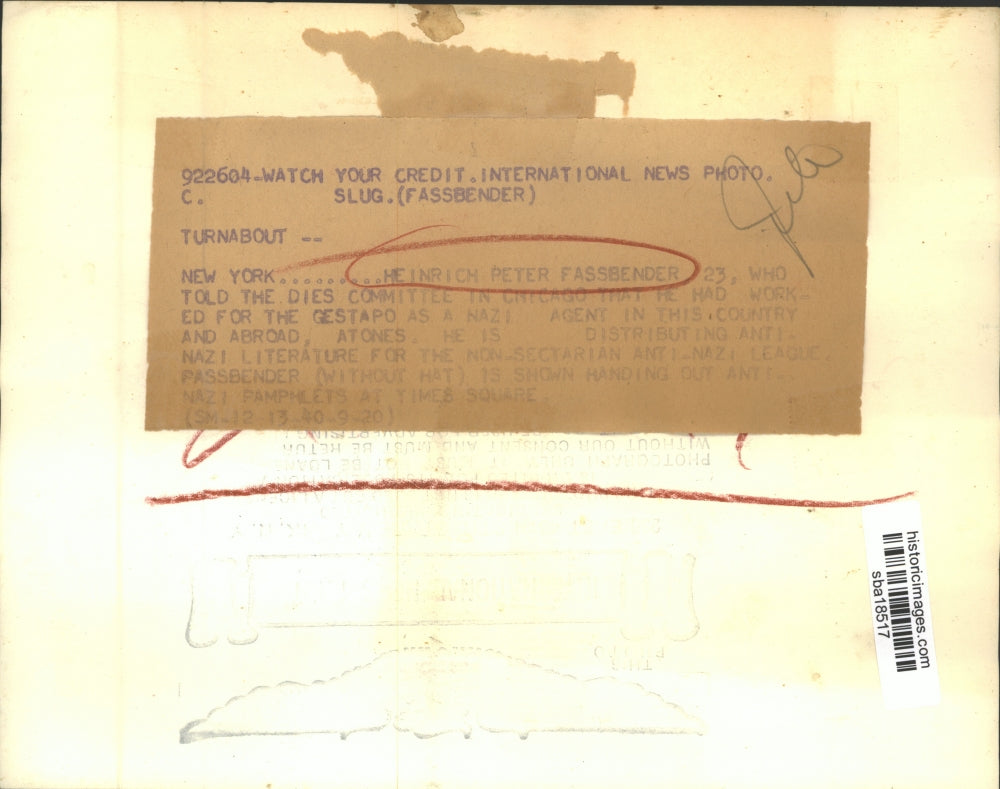 922604-WATCH YOUR CREDIT.INTERNATIONAL NEWS PHOTO.
C. SLUG.(FASSBENDER)
TURNABOUT --
NEW YORK.........HEINRICH PETER FASSBENDER, 23, WHO
TOLD THE DIES COMMITTEE IN CHICAGO THAT HE HAD WORK-
ED FOR THE GESTAPO AS A NAZI AGENT IN THIS COUNTRY
AND ABROAD, ATONES. HE IS DISTRIBUTING ANTI-
NAZI LITERATURE FOR THE NON-SECTARIAN ANTI-NAZI LEAGUE.
FASSBENDER (WITHOUT HAT) IS SHOWN HANDING OUT ANTI-
NAZI PAMPHLETS AT TIMES SQUARE.
(SM-12-13-40-9-20)
WITHOUT OUR CONSENT AND MUST BE RETUR
PHOTOGRAPH ONLY
BE LOANE
THIS
PHOTO
historicimages.com
sba18517